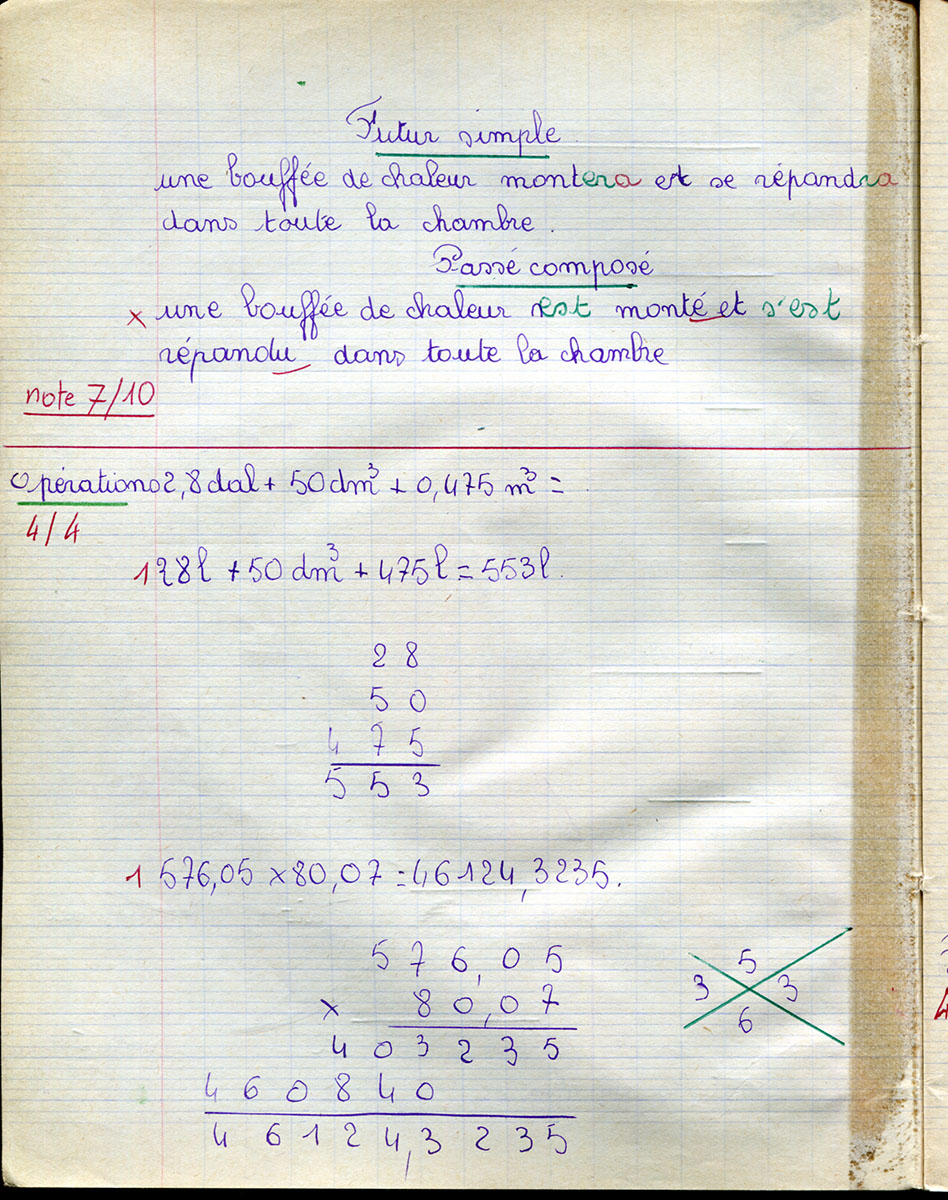 Futur simple
une bouffée de chaleur montera et se répandra
dans toute la chambre.
Passé composé
x une bouffée de chaleur est monté et s'est
répandu dans toute la chambre
note 7/10
Opérations 2,8dal + 50dm³ + 0,475 m³ =
4/4
1 28l + 50 dm³ + 475l = 553l.
2 8
5 0
4 7 5
5 5 3
1 576,05 x 80,07 = 46124,3235.
5 7 6,0 5
x 8 0,0 7
4 0 3 2 3 5
4 6 0 8 4 0
4 6 1 2 4,3 2 3 5
5
3 3
6